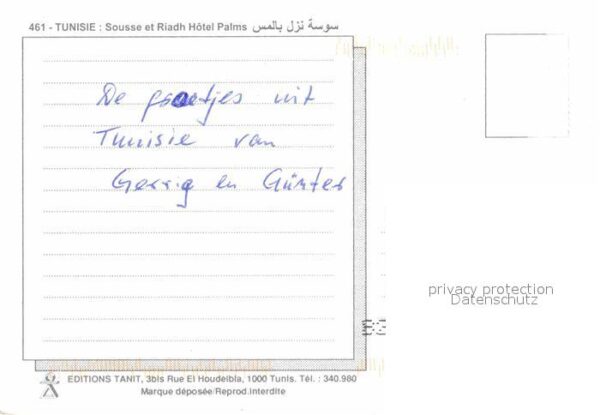 461 - TUNISIE : Sousse et Riadh Hôtel Palms سوسة نزل بالمس
De groetjes uit
Tunisie van
en Günter
privacy protection
Datenschutz
EDITIONS TANIT, 3bis Rue El Houdeibia, 1000 Tunis. Tél. : 340.980
Marque déposée/Reprod.Interdite